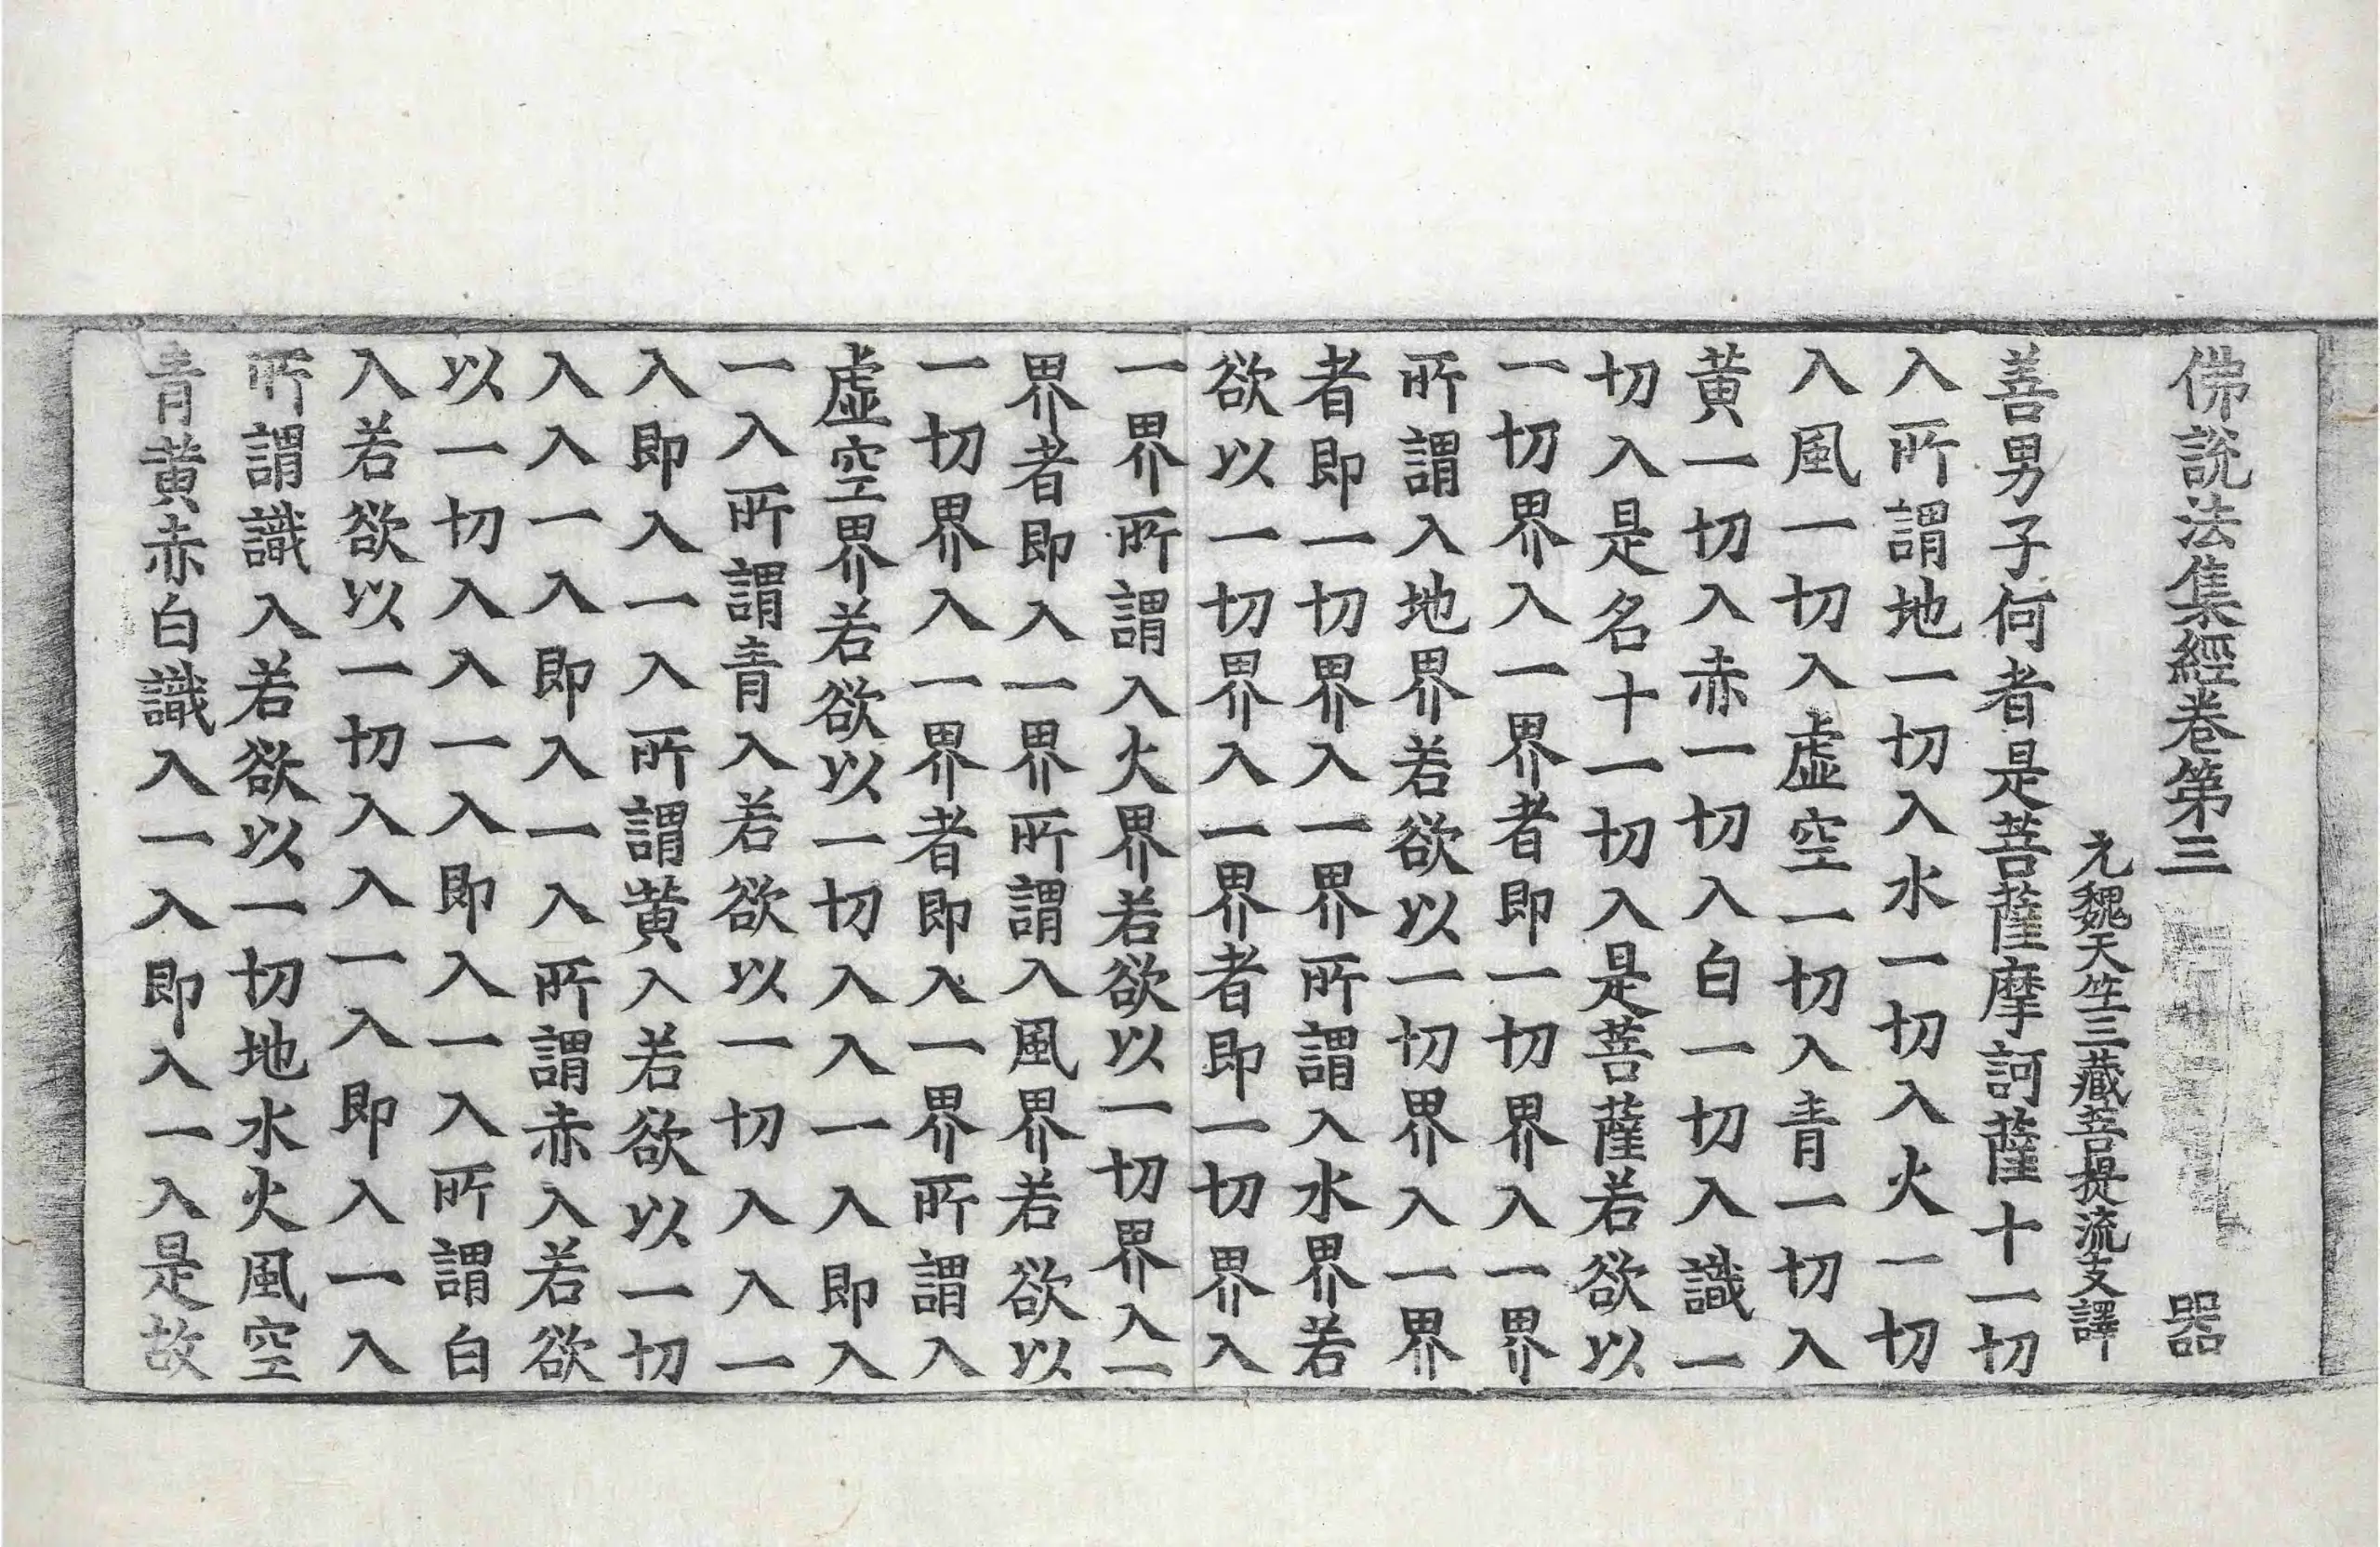 佛說法集經卷第三 器
元魏天竺三藏菩提流支譯
善男子何者是菩薩摩訶薩十一切
入所謂地一切入水一切入火一切
入風一切入虛空一切入青一切入
黃一切入赤一切入白一切入識一
切入是名十一切入是菩薩若欲以
一切界入一界者即一切界入一界
所謂入地界若欲以一切界入一界
者即一切界入一界所謂入水界若
欲以一切界入一界者即一切界入
一界所謂入火界若欲以一切界入一
界者即入一界所謂入風界若欲以
一切界入一界者即入一界所謂入
虛空界若欲以一切入入一入即入
一入所謂青入若欲以一切入入一
入即入一入所謂黃入若欲以一切
入入一入即入一入所謂赤入若欲
以一切入入一入即入一入所謂白
入若欲以一切入入一入即入一入
所謂識入若欲以一切地水火風空
青黃赤白識入一入即入一入是故